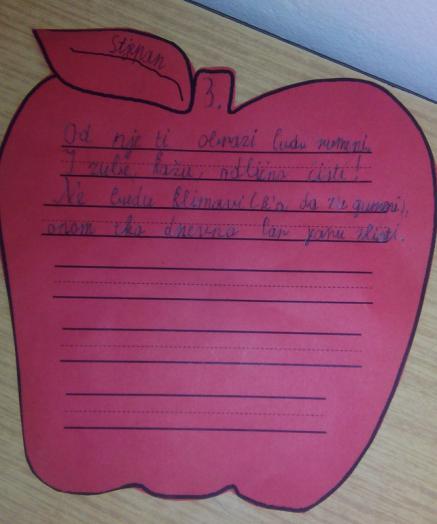 Stjepan
3.
Od nje ti obrazi budu rumeni.
I zube, kažu, odlično čisti!
Ne budu klimavi (k'o da su gumeni),
onom tko dnevno bar jednu